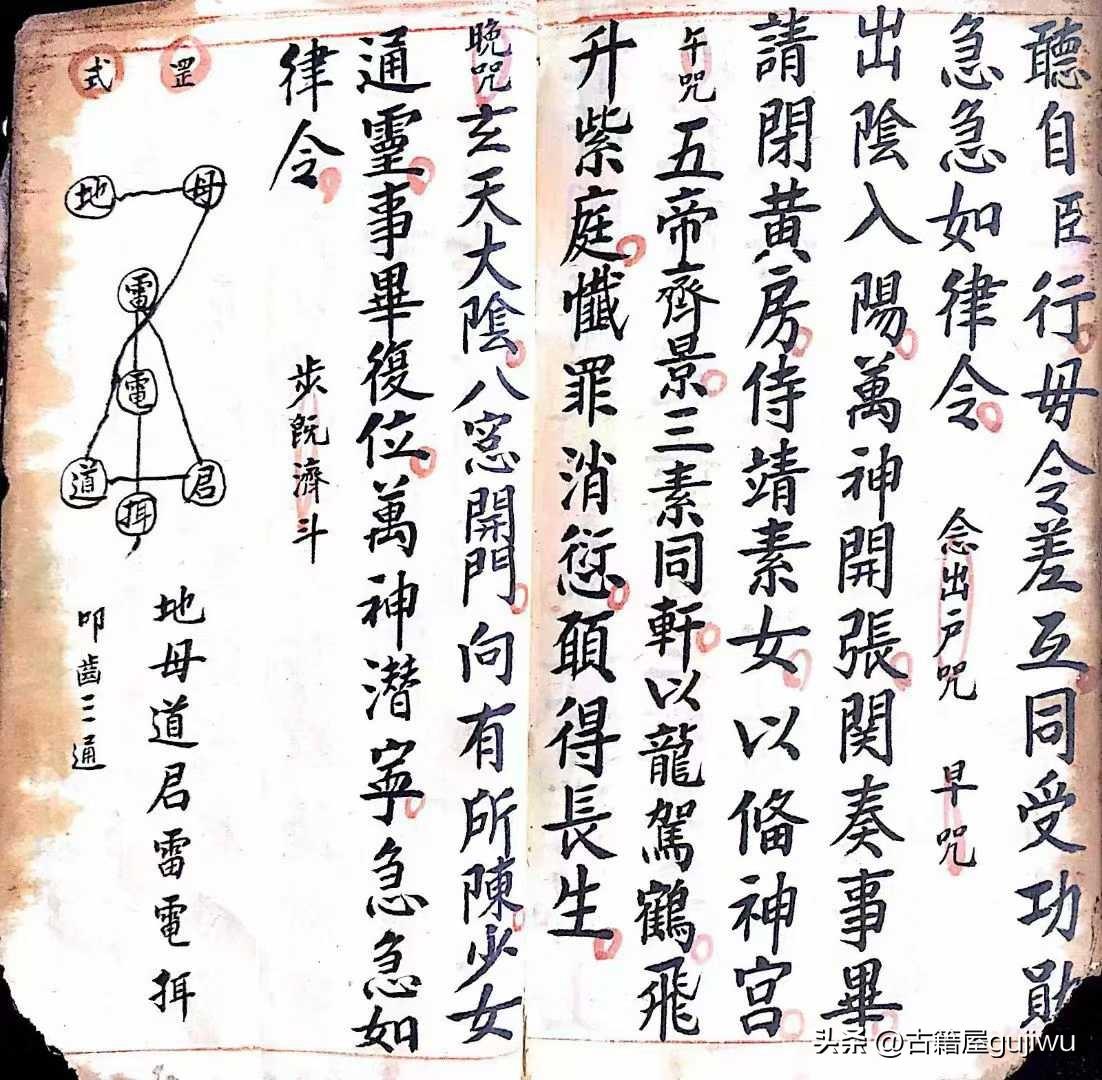 聽自臣行毋令差互同受功勛
急急如律令 念出户咒 早咒
出陰入陽萬神開張関奏事畢
請閉黄房侍靖素女以俻神宫
午咒五帝齊景三素同軒以龍駕鶴飛
升紫庭懺罪消愆願得長生
晚咒玄天大陰八窓開門向有所陳少女
通靈事畢復位萬神潜寧急急如
律令
步既濟斗
罡
式
地 母
雷
電
道 君
挕
地母道君雷電挕
叩齒三通
头条 @古籍屋gujiwu